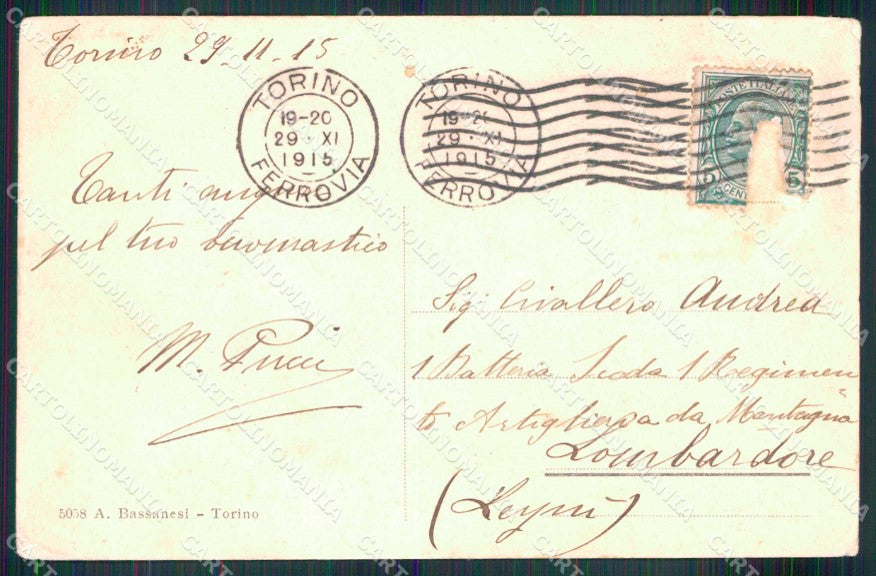 Torino 29-11-15
TORINO
19-20
29·XI
1915
FERROVIA
TORINO
19-20
29·XI
1915
FERROVIA
POSTE ITALIANE
5 CENT 5
Tanti auguri
pel tuo onomastico
M. Pucci
Sig Civallero Andrea
1 Batteria 1 Regimen
to Artiglieria da Montagna
Lombardore
(Leyni)
5058 A. Bassanesi - Torino
CARTOLINOMANIA